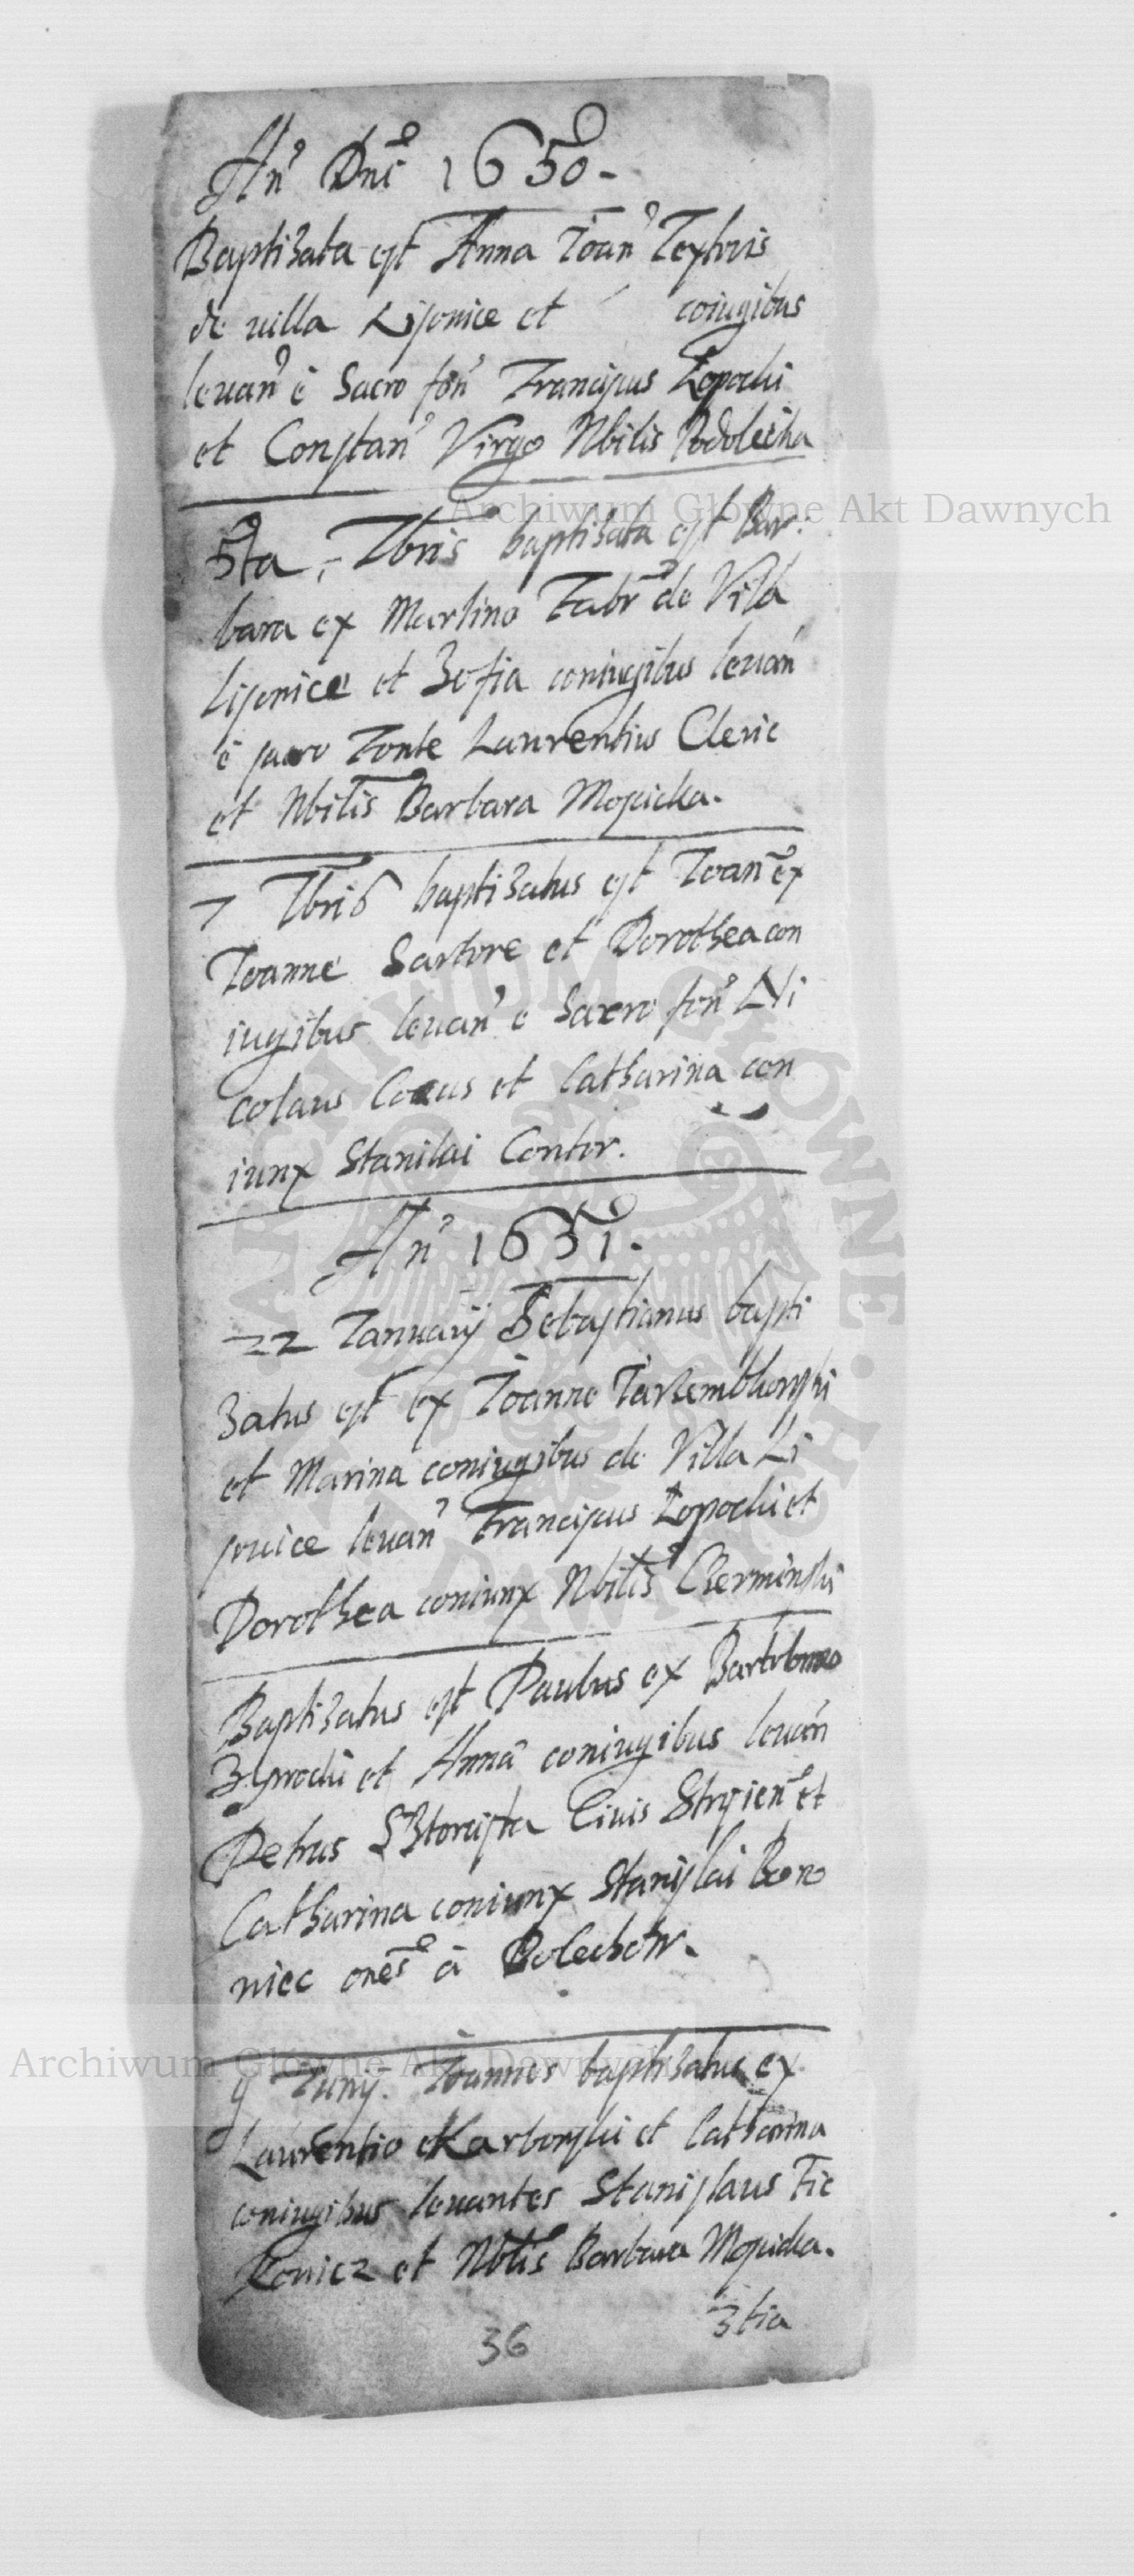 An° Dni 1650.
Baptizata est Anna Joan Textoris
de villa Lisouice et coiugibus
leuan è Sacro fon Franciscus Łopocki
et Constan Virgo Nbilis Podolecka
5ta 7bris baptizata est Bar:
bara ex Martino Fabr de Villa
Lisouice et Zofia coniugibus leuan
è sacro Fonte Laurentius Cleric
et Nbilis Barbara Mosicka.
7 7bris baptizatus est Joan ex
Joanne Sartore et Dorothea con
iugibus leuan e sacro fon Ni
colaus Cocus et Catharina con
iunx Stanilai Contor.
An° 1651.
22 Januarij Sebastianus bapti
zatus est ex Joanne Jarzemborski
et Marina coniugibus de Villa Li
souice leuan Franciscus Łopocki et
Dorothea coniunx Nbilis Czerminski
Baptizatus est Paulus ex Bartolomeo
et Anna coniugibus leuan
Petrus Ciuis Stryien et
Catharina coniunx Stanislai Boro
niec ones à Bolechow.
9 Junij. Joannes baptizatus ex
Laurentio Skarborski et Catharina
coniugibus leuantes Stanislaus Fie
et Nbilis Barbara Mosicka.
3tia
36
Archiwum Główne Akt Dawnych
Archiwum Główne Akt Dawnych